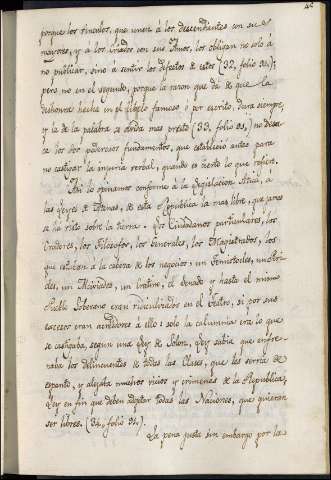 porque los vinculos, que unen á los descendientes con sus
mayores, y á los criados con sus Amos, los obligan no solo á
no publicar, sino á sentir los defectos de estos (32, folio 32);
pero no en el segundo, porque la razon que da de que la
deshonra hecha en el libelo famoso ó por escrito, dura siempre,
y la de la palabra se olvida mas presto (33, folio 33,) no desa-
ta los dos poderosos fundamentos, que estableció antes para
no castigar la injuria verbal, quando es cierto lo que refiere.
Asi lo opinamos conforme á la Legislacion Atica, á
las Leyes de Atenas, de esta Republica la mas libre, que jamas
se ha visto sobre la tierra. Los Ciudadanos particulares, los
Oradores, los Filosofos, los Generales, los Magistrados, los
que estaban á la cabeza de los negocios, un Temistocles, un Aristi-
des, un Alcibiades, un el Senado y hasta el mismo
Pueblo Soberano eran ridiculizados en el teatro, si por sus
excesos eran acrehedores á ello: solo la calumnia era lo que
se castigaba, segun una Ley de Solon, Ley sabia que enfre-
naba los delinquentes de todas las Clases, que les servia de
espanto, y alejaba muchos vicios y crimenes de la Republica,
Ley en fin que deben adoptar todas las Naciones, que quieran
ser libres. (34, folio 34.).
La pena justa sin embargo por la